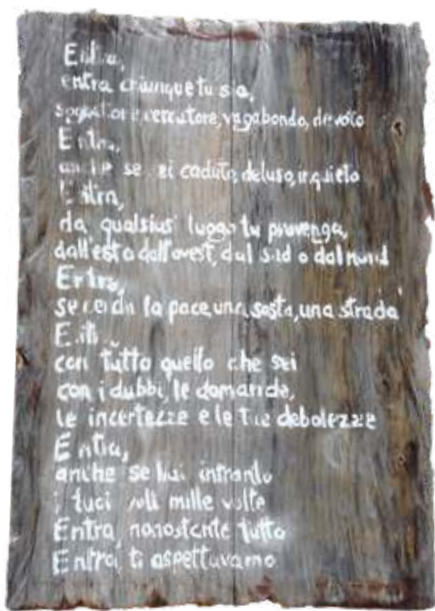 Entra,
entra chiunque tu sia,
sognatore, cercatore, vagabondo, devoto
Entra,
anche se sei caduto, deluso, inquieto
Entra,
da qualsiasi luogo tu provenga,
dall'est o dall'ovest, dal sud o dal nord
Entra,
se cerchi la pace, una sosta, una strada
Entra
con tutto quello che sei
con i dubbi, le domande,
le incertezze e le tue debolezze
Entra,
anche se hai infranto
i tuoi voti mille volte
Entra, nonostante tutto
Entra, ti aspettavamo